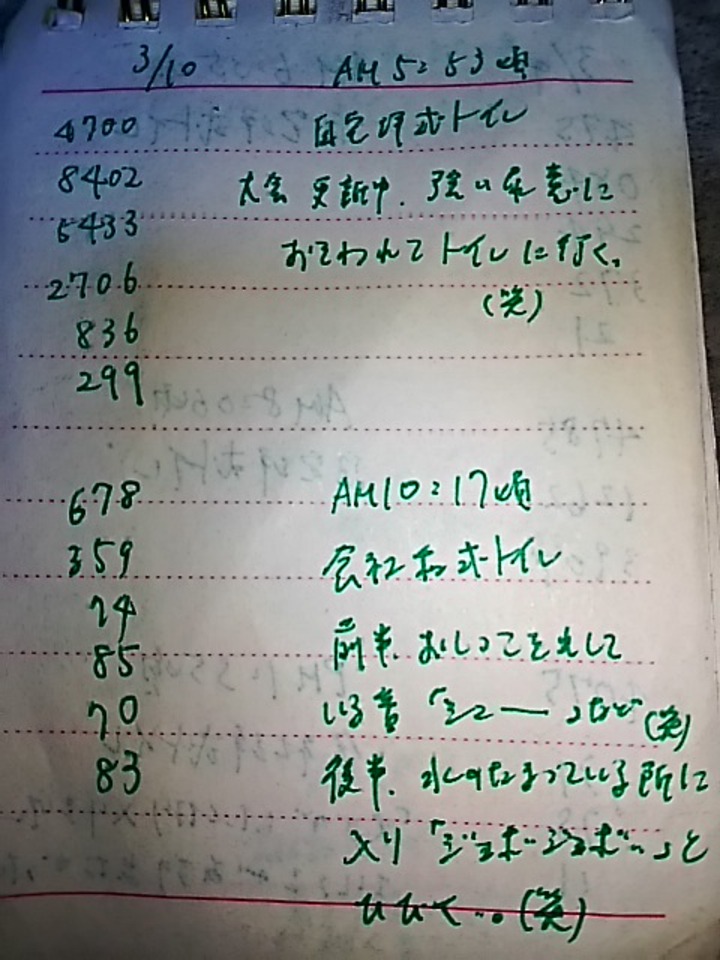 3/10 AM5:53頃
4700 自宅洋式トイレ
8402 大会更新中、強い尿意に
5433
おそわれてトイレに行く。
2706
(笑)
836
299
678 AM10:17頃
359 会社和式トイレ
74
前半、おしっこを出して
85
70 いる音「シー――」など(笑)
83 後半、水のたまっている所に
入り「ジョボージョボ…」と
ひびく…。(笑)